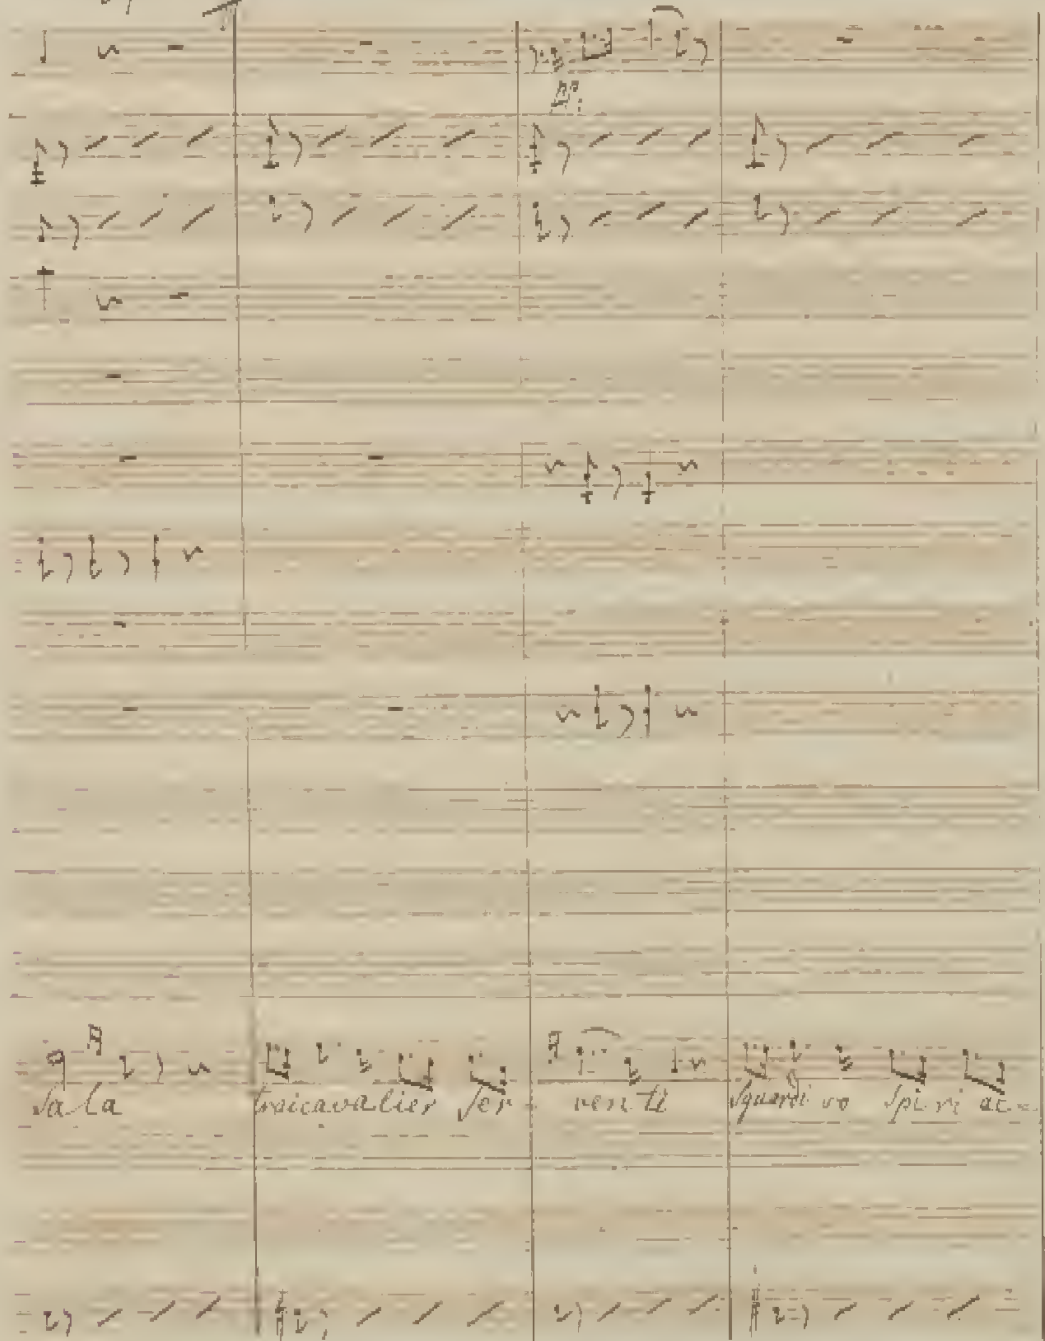 sala traicavalier ser- venti sguardi so spi ri ac-